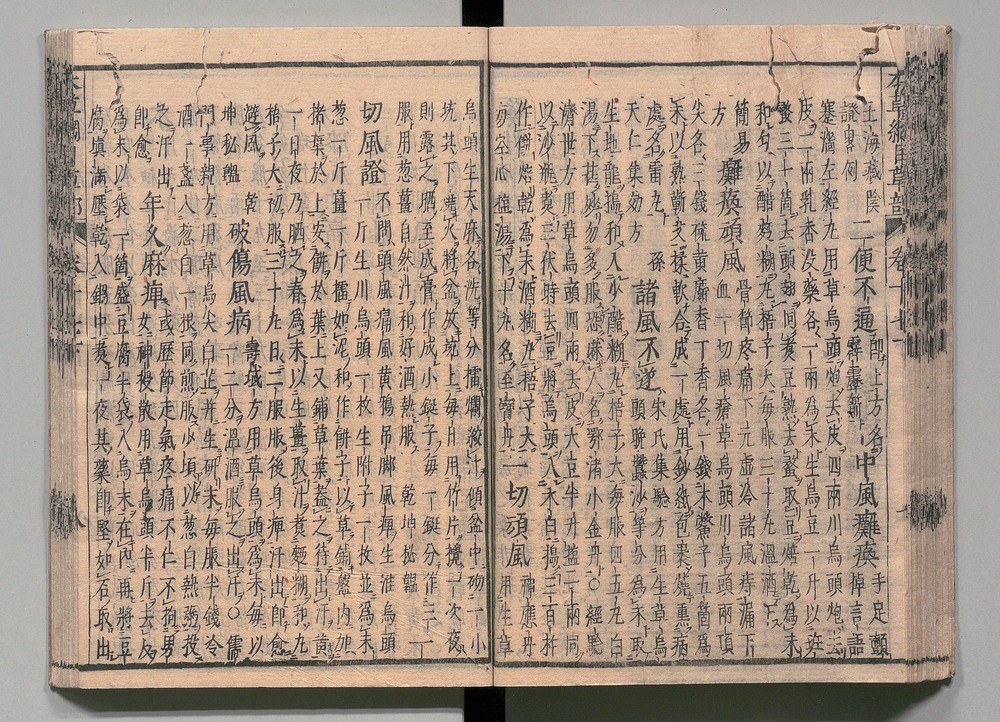 土海藏陰
證寒例 二便不通 即上方名霹靂箭 中風癱瘓 手足顫掉言語
塞濇左經丸用草烏頭炮去皮四兩川烏頭炮去
皮二兩乳香沒藥各一兩為末生烏豆一升以斑
蝥三十箇去頭翅同煮豆熟去蝥取豆焙乾為末
和勻以醋麪糊丸梧子大每服三十丸溫酒下
簡易方 癱瘓頑風 骨節疼痛下元虛冷諸風痔漏下血一切風瘡草烏頭川烏頭兩頂
尖各三錢硫黃麝香丁香各一錢木鱉子五箇為
末以熟蘄艾揉軟各成一處用鈔紙包裹燒熏病
處名雷丸 孫天仁集効方 諸風不遂 朱氏集驗方用生草烏頭晚蠶沙等分為末取
生地龍搗和入少醋糊丸梧子大每服四五丸白
湯下甚妙勿多服恐麻人名鄂渚小金丹○經驗
濟世方用草烏頭四兩去皮大豆半升鹽一兩同
以沙瓶煑三伏時去豆將烏頭入木臼搗三百杵
作餅焙乾為末酒糊丸梧子大
空心鹽湯下十丸名至寶丹 一切頑風 神應丹用生草
烏頭生天麻各洗等分擂爛絞汁傾盆中砌一小
坑其下燒火將盆放坑上每日用竹片攪一次夜
則露之晒至成膏作成小鋌子每一鋌分作三
服用葱薑自然汁和好酒熱服 乾坤秘韞 一
切風證 不問頭風痛風黃鵶吊脚風痺生淮烏頭一斤生川烏頭一枚生附子一枚並為末
葱一斤薑一斤擂如泥和作餅子以草鋪盤內加
楮葉於上安餅於葉上又鋪草葉蓋之待出汗黃
一日夜乃晒之舂為末以生薑取汁煮麪糊和丸
梧子大初服三十丸日二服服後身痺汗出即愈
避風 乾坤秘韞 破傷風病 壽域方用草烏頭為末每以一二分溫酒服之出汗○儒
門事親方用草烏尖白芷並生研末每服半錢冷
酒一盞入葱白一根同煎服少頃以葱白熱粥投
之汗出即愈 年久麻痺 或歷節走氣疼痛不仁不拘男女神授散用草烏頭半斤去皮
為末以袋一箇盛豆腐半袋入烏末在內再將豆
腐填滿壓乾入鍋中煑一夜其藥即堅如石取出